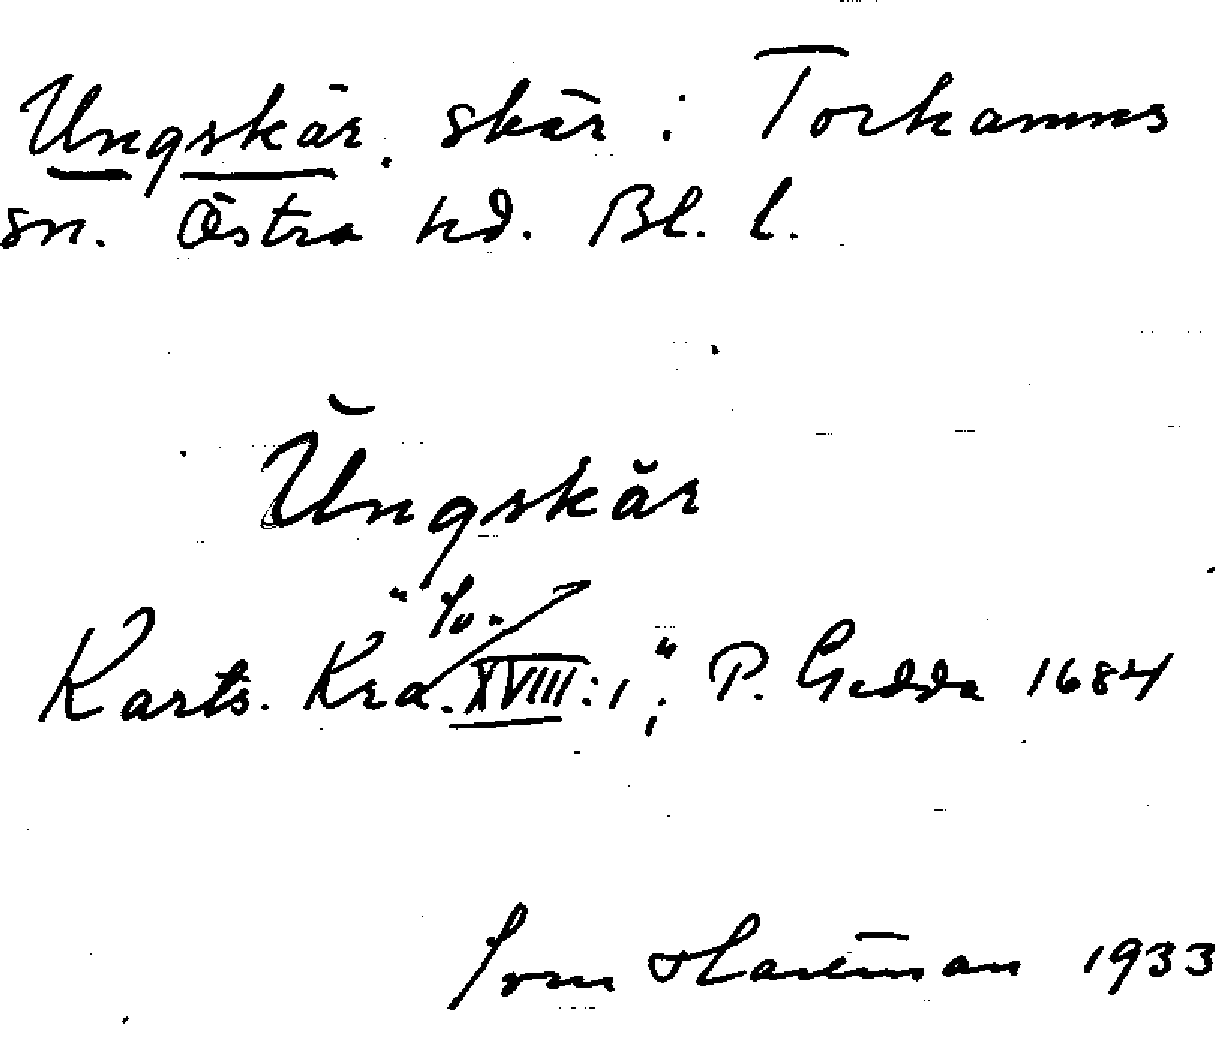 Ungskär. skär i Torhamns
sn. Östra hd. Bl. l.
Ŭngskăr
Karts. Kra. XVIII:1; P. Gedda 1684
1933